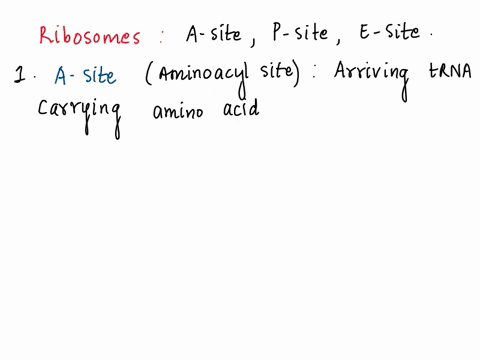 Ribosomes : A-site, P-site, E-site.
1. A-site (Aminoacyl site) : Arriving tRNA
Carrying amino acid